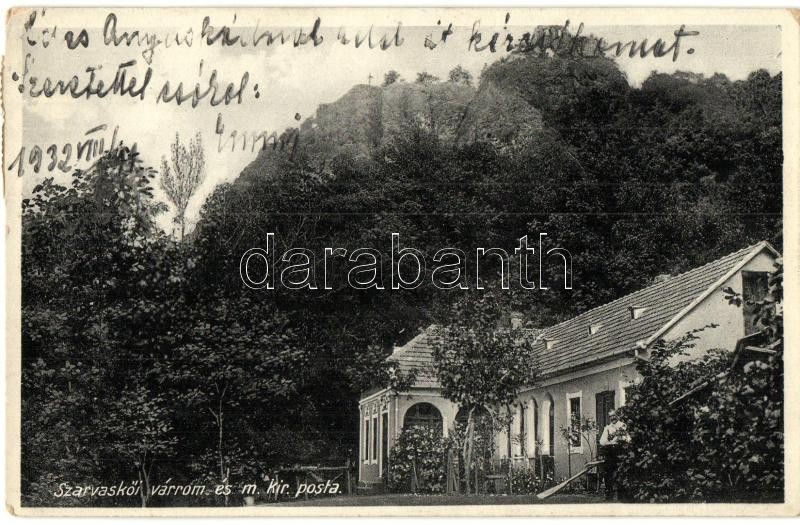 és Anyuskádnak add át kézcsókomat.
Szeretettel csókol:
Emmi
1932 VIII/
darabanth
Szarvaskői várrom és m. kir. posta.